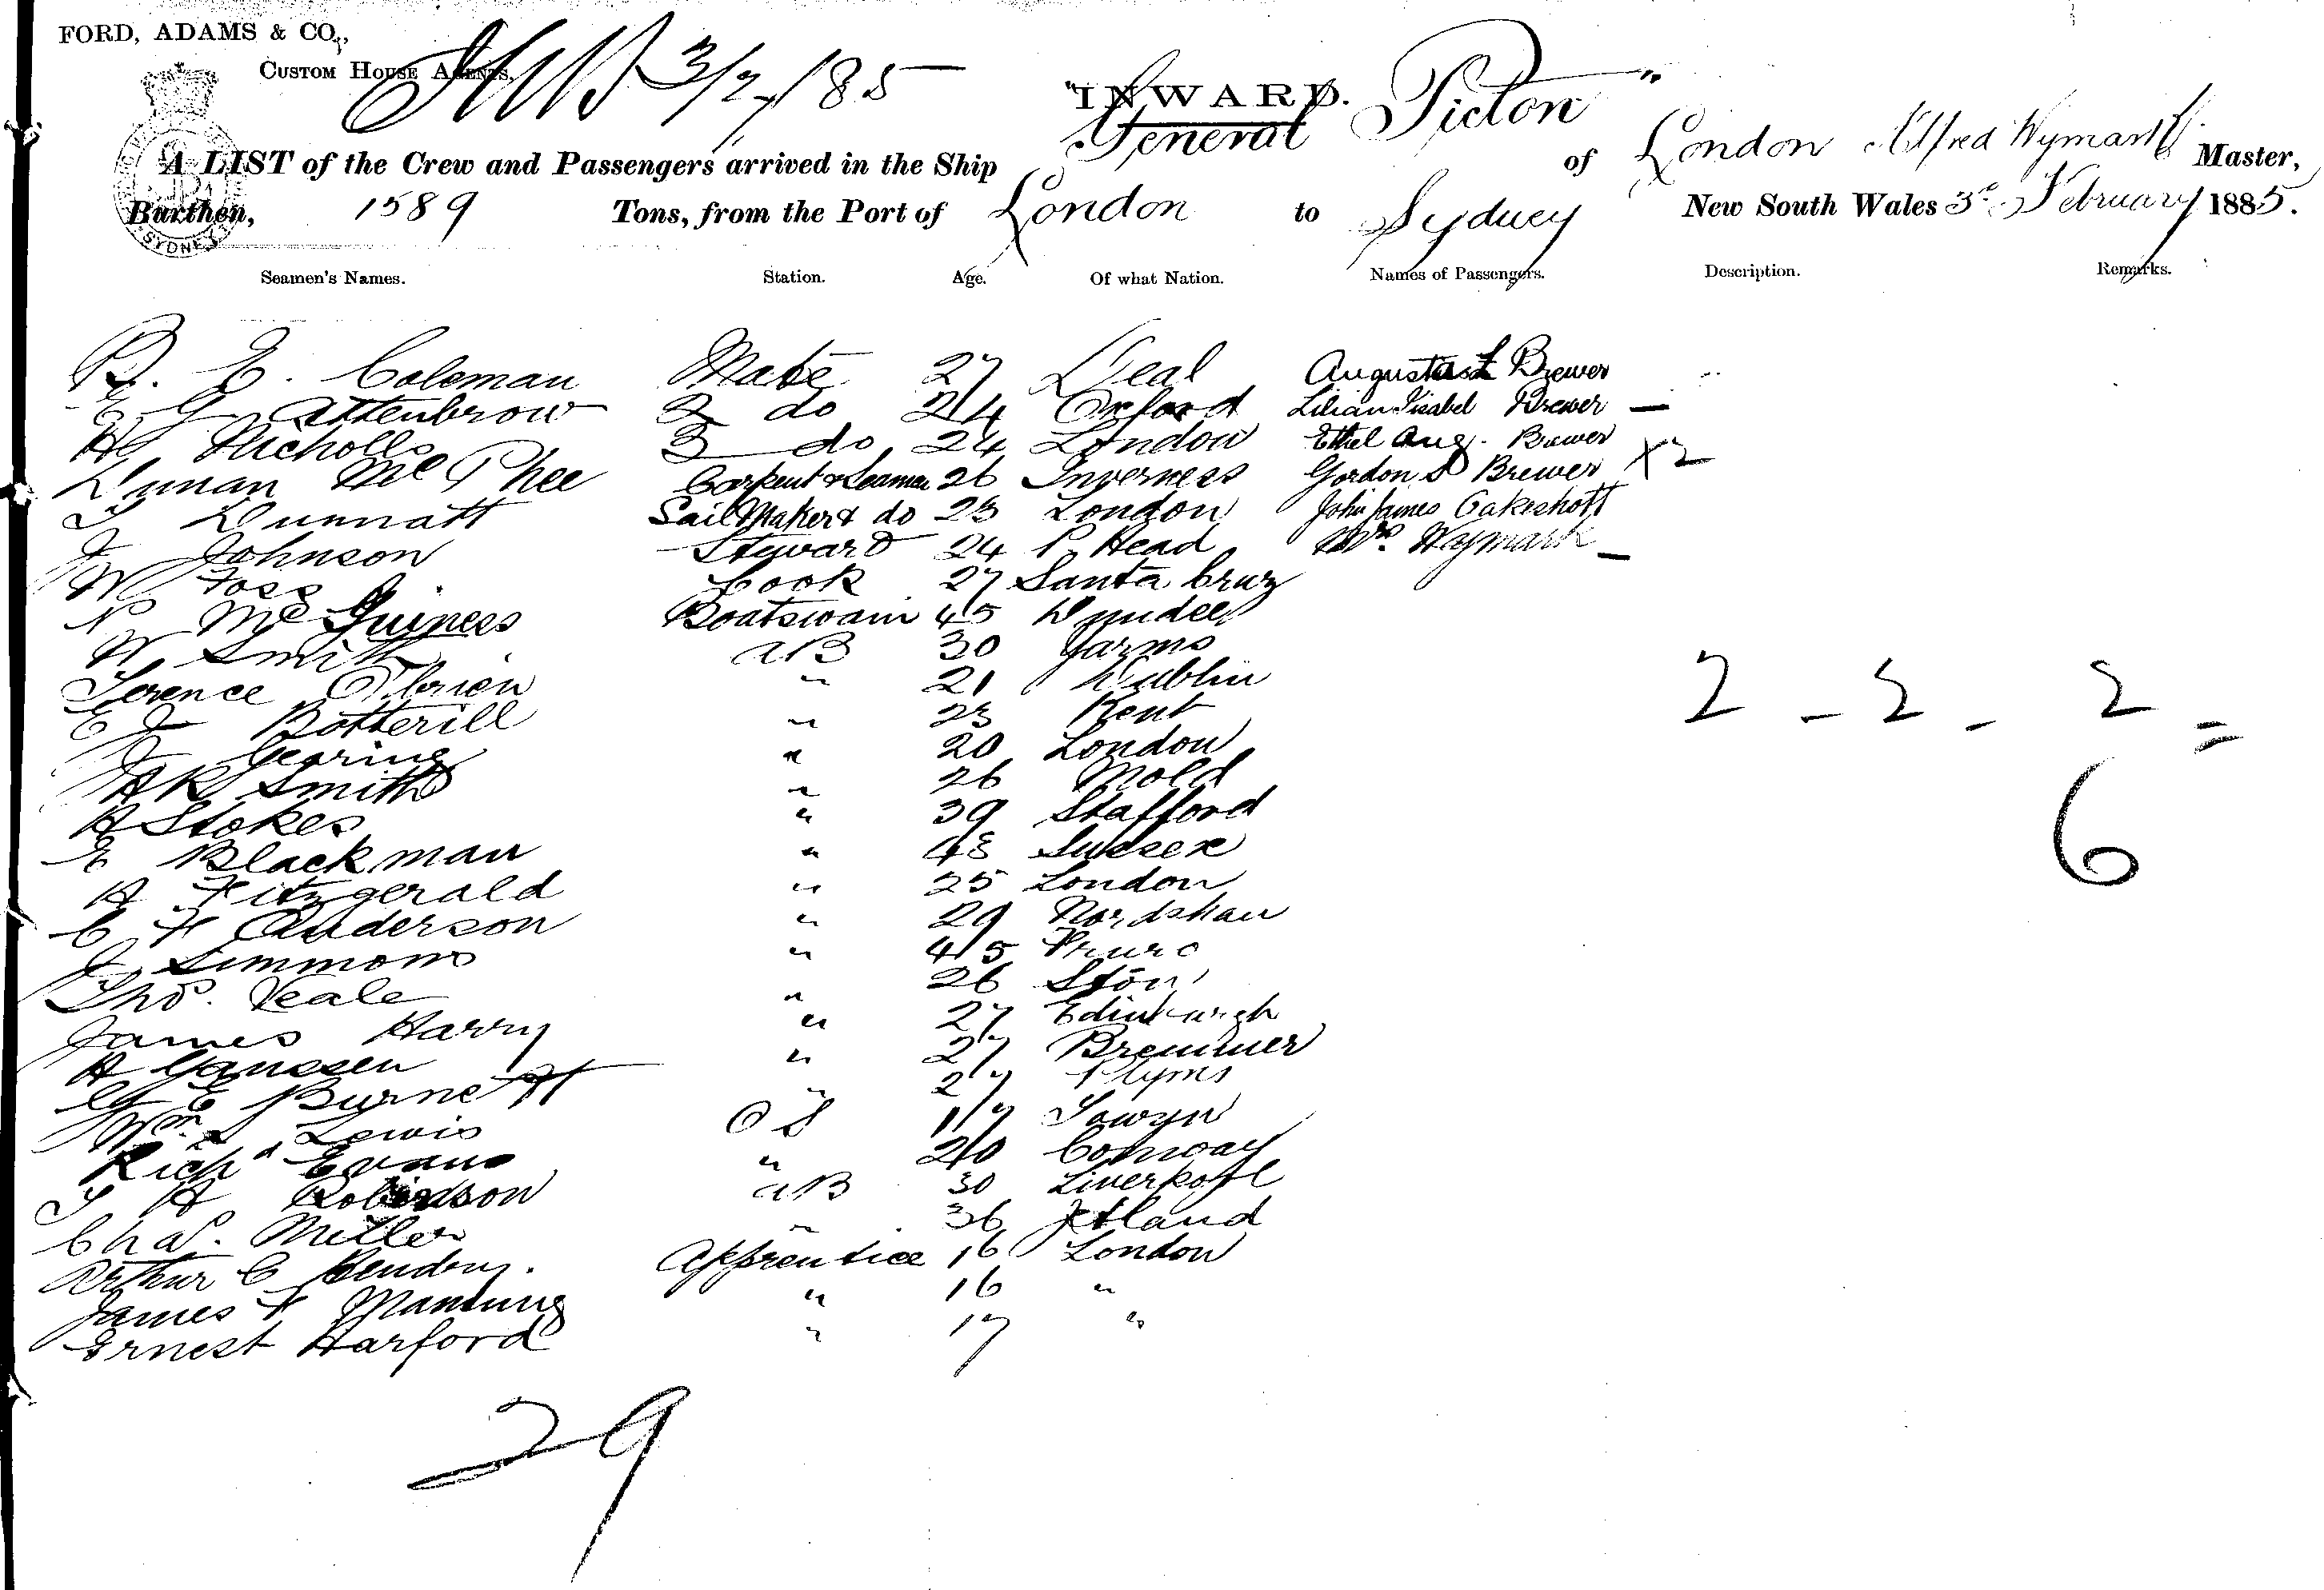 FORD, ADAMS & CO.,
CUSTOM HOUSE AGENTS.
3/2/85
INWARD.
"General Picton"
A LIST of the Crew and Passengers arrived in the Ship of London Alfred Wymark Master,
Burthen, 1589 Tons, from the Port of London to Sydney New South Wales 3rd February 1885.
Seamen's Names. Station. Age. Of what Nation. Names of Passengers. Description. Remarks.
E. Coleman Mate 27 Deal Augusta L Brewer
E G Attenbrow 2 do 24 Oxford Lilian Isabel Brewer —
H Nicholls 3 do 24 London Ethel Aug. Brewer
Dunan McPhee Carpent & Seaman 26 Inverness Gordon D Brewer X 2
J Dunnatt Sail Maker & do 23 London John James Oakeshott
J Johnson Steward 24 P. Head Mrs. Waymark —
W Foss Cook 27 Santa Cruz
P McGuiness Boatswain 45 Dundee
W Smith AB 30 Yarms
Terence O'Brien " 21 Dublin
E J Botterill " 23 Kent
J Gearing " 20 London
A R Smith " 26 Mold
H Stokes " 39 Stafford
E Blackman " 43 Sussex
H Fitzgerald " 25 London
C F Anderson " 29
J Simmons " 45
Thos. Veale " 26 Ston
James Harry " 27 Edinburgh
H Ganssen " 27 Bremmer
G E Burnett " 27 Plyms
Wm L Lewis OS 17 Towyn
Richd Evans " 20 Conway
J H Robinson AB 30 Liverpool
Chas. Miller " 36 Jtland
Arthur C Apprentice 16 London
James F Manning " 16 "
Ernest Harford " 17 "
2 - 2 - 2 =
6
29